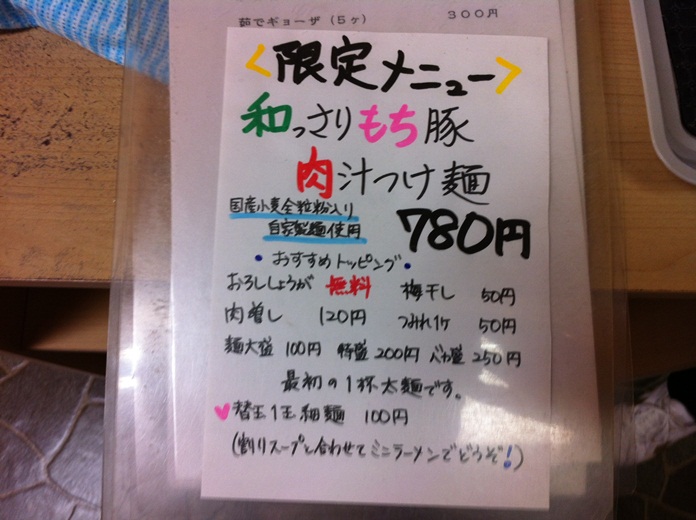 茹でギョーザ(5ヶ) 300円
<限定メニュー>
和っさりもち豚
肉汁つけ麺
国産小麦全粒粉入り
自家製麺使用
780円
・おすすめトッピング・
おろししょうが 無料 梅干し 50円
肉増し 120円 つみれ1ヶ 50円
麺大盛 100円 特盛 200円 バカ盛 250円
最初の1杯太麺です。
♥替玉1玉細麺 100円
(割りスープと合わせてミニラーメンでどうぞ!)